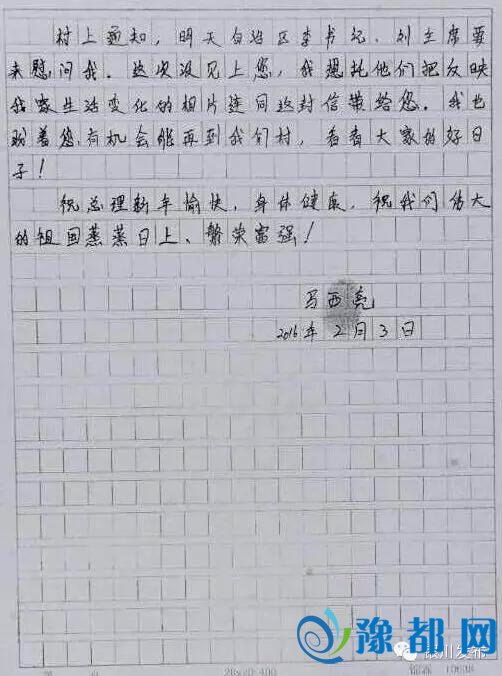 村上通知，明天自治区李书记、刘主席要
来慰问我。这次没见上您，我想托他们把反映
我家生活变化的相片连同这封信带给您。我也
盼着您有机会能再到我们村，看看大家的好日
子！
祝总理新年愉快，身体健康，祝我们伟大
的祖国蒸蒸日上、繁荣富强！
马西亮
2016年 2月 3日
豫都网
银川发布
20×20=400